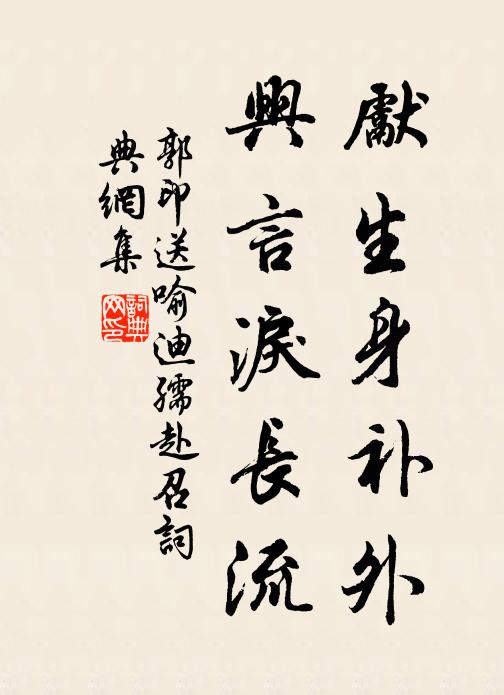 獻生身补外
興言淚長流
郭印送喻迪孺赴召詞
典網集
詞典網印